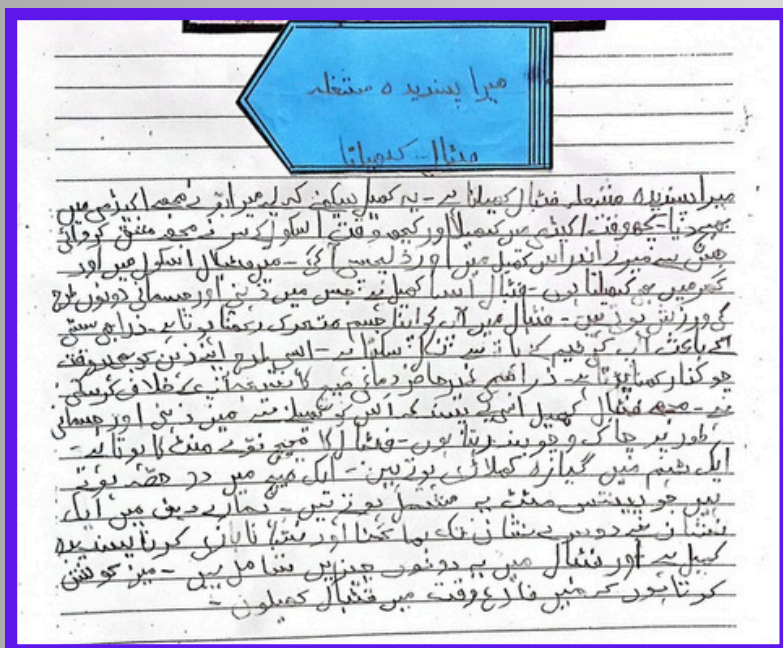 میرا پسندیدہ مشغلہ
فٹبال کھیلنا
میرا پسندیدہ مشغلہ فٹبال کھیلنا ہے۔ یہ کھیل سیکھنے کے لیے میرے ابو نے مجھے اکیڈمی میں
بھیج دیا۔ کچھ وقت اکیڈمی میں کھیلا اور کچھ وقت اسکول کے سر نے مجھے مشق کروائی
جس سے میرے اندر اس کھیل میں اور ڈلپسی آ گئی۔ میں فٹبال اسکول میں اور
گھر میں بھی کھیلتا ہوں۔ فٹبال ایسا کھیل ہے جس میں ذہنی اور جسمانی دونوں طرح
کی ورزش ہوتی ہیں۔ فٹبال میں آپ کو اپنا جسم متحرک رکھنا ہوتا ہے۔ ذرا سی سستی
کے باعث آپ کی ٹیم کے ہاتھ سے نکل سکتا ہے۔ اسی طرح اپنے ذہن کو بھی ہر وقت
چوکنا رکھنا ہوتا ہے۔ ذرا بھی غیر حاضر دماغی میچ کا نتیجہ آپ کے خلاف کر سکتی
ہے۔ مجھے فٹبال کھیل اسی لیے پسند ہے کہ اس کو کھیلنے سے میں ذہنی اور جسمانی
طور پر چاک و چوبند رہتا ہوں۔ فٹبال کا میچ نوے منٹ کا ہوتا ہے۔
ایک ٹیم میں گیارہ کھلاڑی ہوتے ہیں۔ ایک میچ میں دو حصے ہوتے
ہیں جو پینتس منٹ پہ مشتمل ہوتے ہیں۔ ہمارے دین میں ایک
نشان سے دوسرے نشانی تک بھاگنا اور نشانا بازی کرنا پسندیدہ
کھیل ہے اور فٹبال میں یہ دونوں چیزیں شامل ہیں۔ میں کوشش
کرتا ہوں کہ میں فارغ وقت میں فٹبال کھیلوں۔